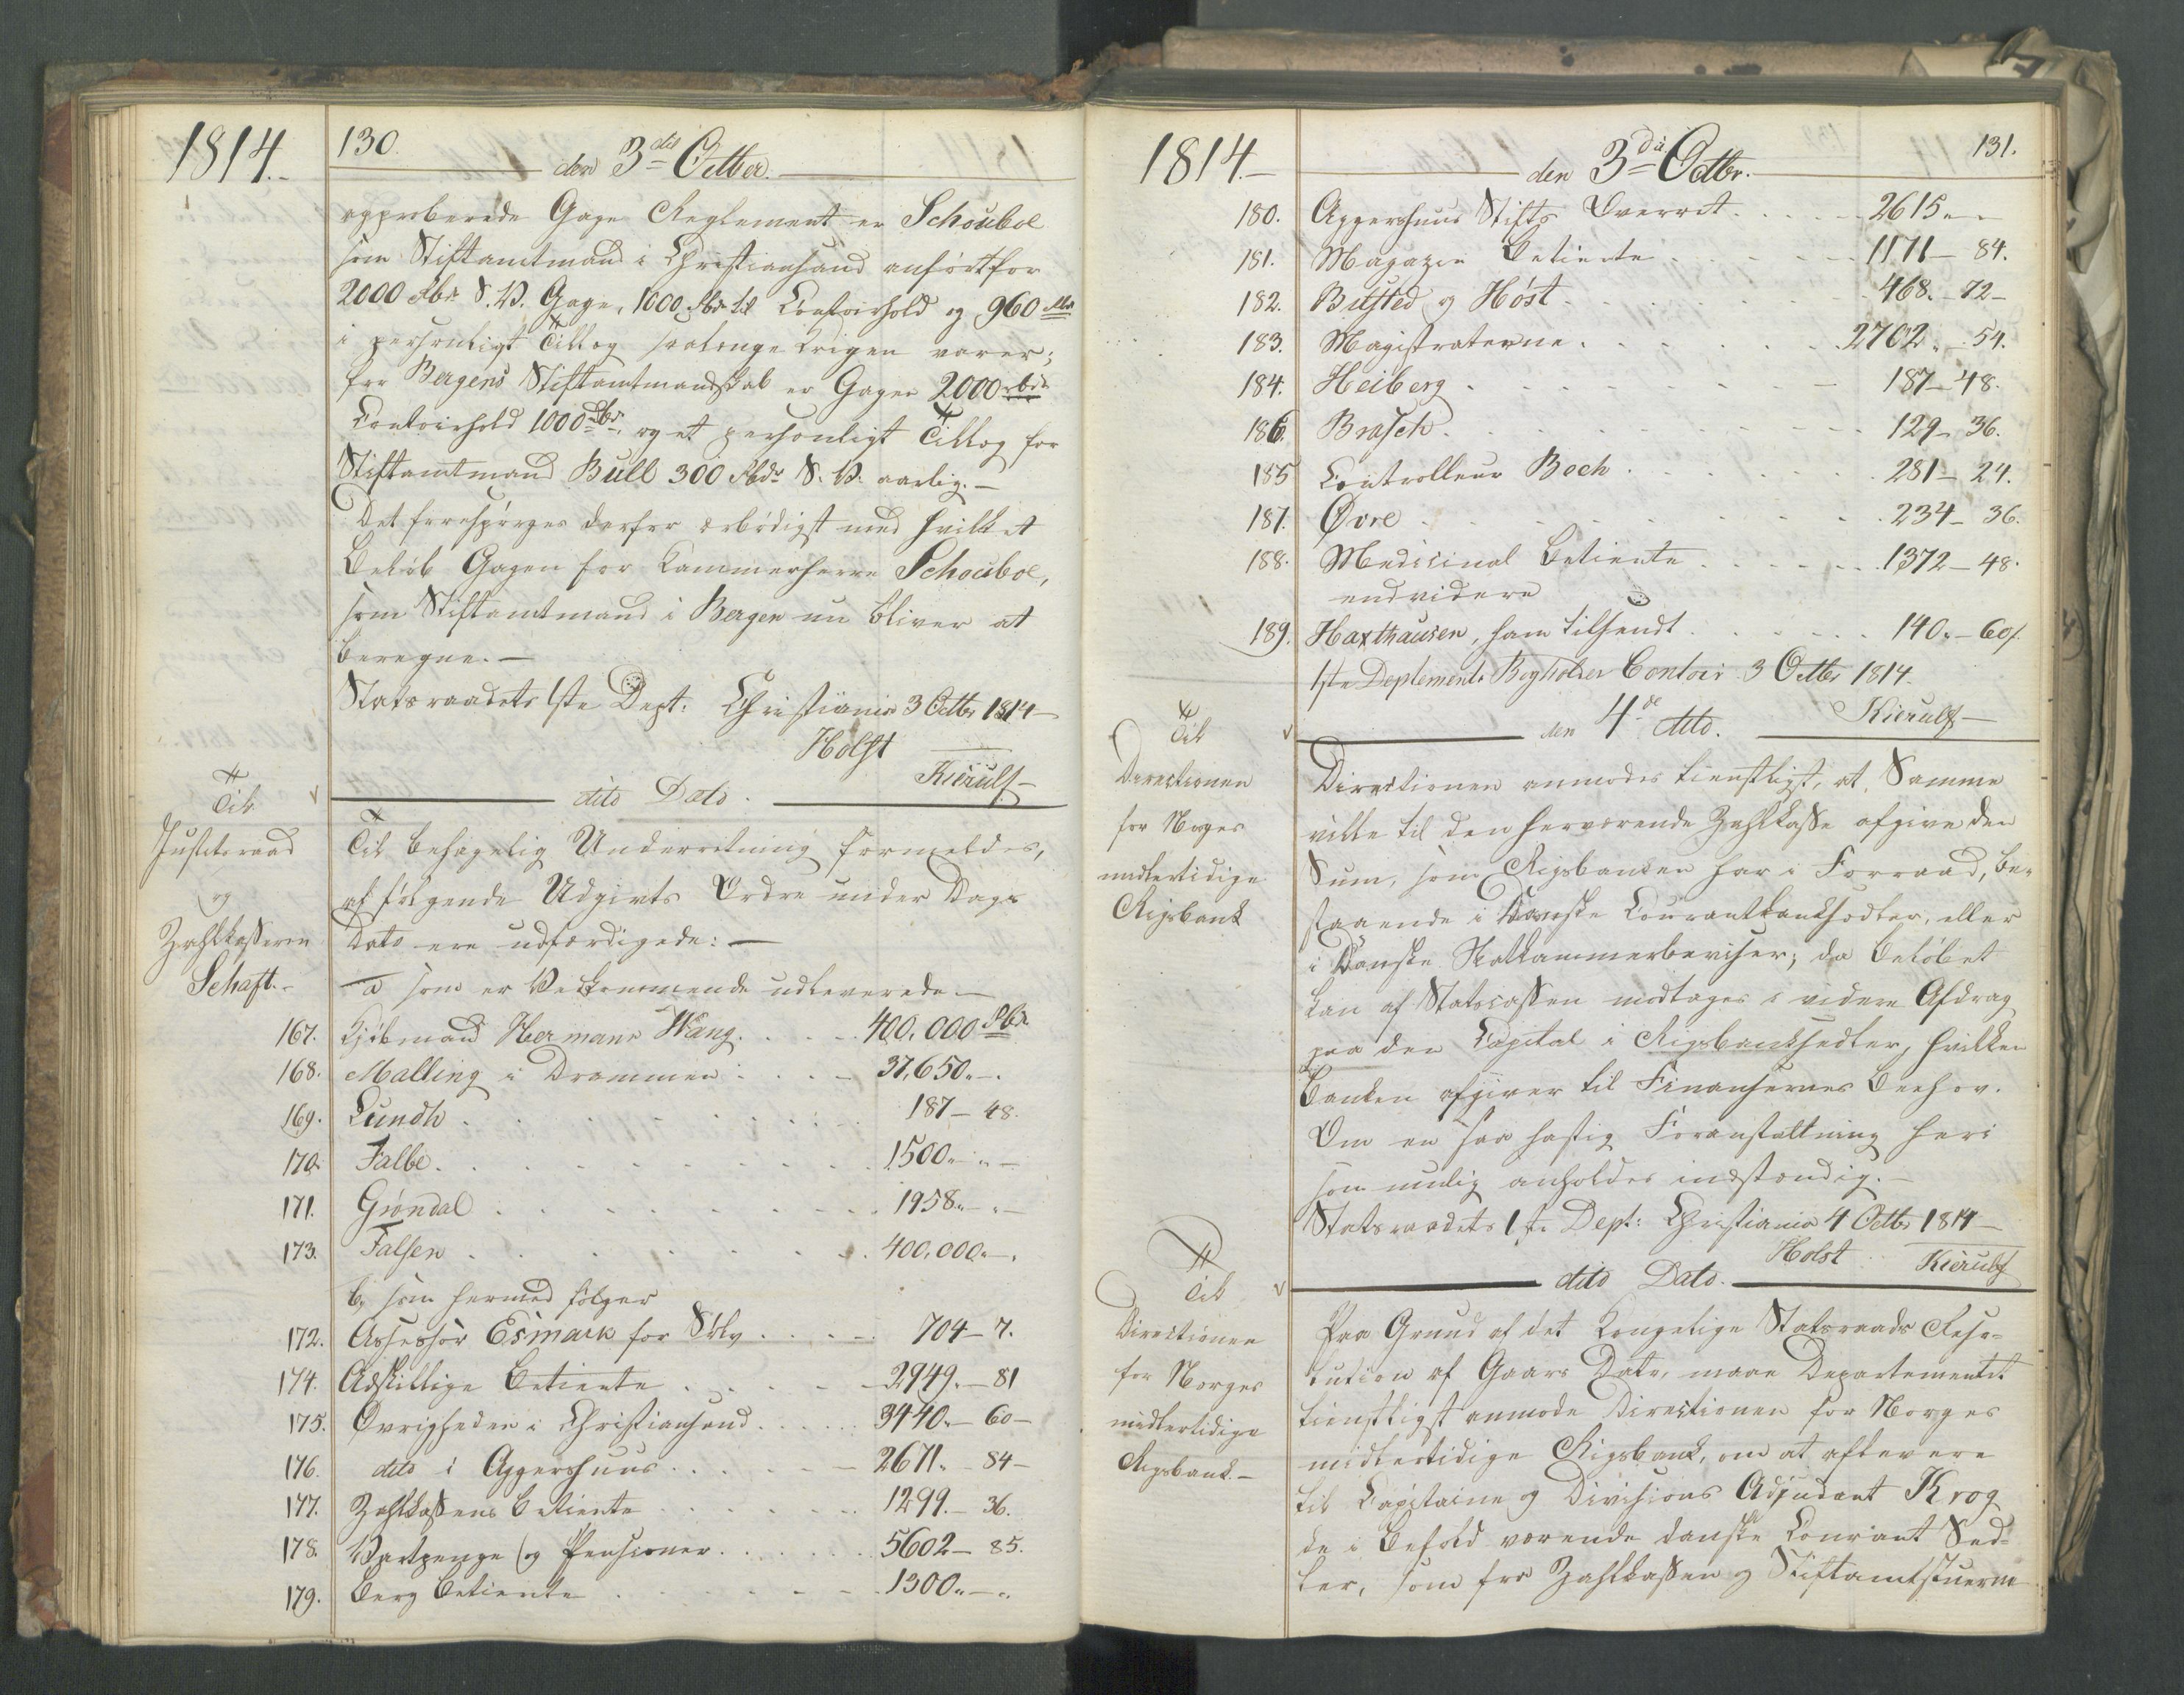 1814.
130.
den 3die Octber.
approberede Gage Reglement er Schouboe
som Stiftamtmand i Christiansand anført for
2000 Rbdr S.V. Gage, 1000 Rbdr til Contoirhold og 960 Rbdr
i personligt Tillæg saalænge Krigen varer;
for Bergens Stiftamtmandskab er Gagen 2000 Rbdr
Contoirhold 1000 Rbdr, og et personligt Tillæg for
Stiftamtmand Bull 300 Rbdr S.V. aarlig.—
Det forespørges derfor ærbødigst med hvilket
Beløb Gagen for Kammerherre Schouboe,
som Stiftamtmand i Bergen nu bliver at
beregne.—
Statsraadets 1ste Dept: Christiania 3 Octbr 1814—
Holst
Kierulf—
Til
Justitsraad
og
Zahlkasserer
Schaft.
dito Dato.
Til behagelig Underretning formeldes,
at følgende Udgivts Ordre under Dags
Dato ere udfærdigede:—
a som er Vedkommende udleverede—
167. Kjøbmand Hermann Wang . . . 400,000 Rbdr
168. Malling i Drammen . . . 37,650.—.
169. Lundh . . . 187— 48.
170. Falbe . . . 1500.—
171. Grøndal . . . 1958.—
173. Falsen . . . 400,000.—.
b, som hermed følger
172. Assessor Esmark for Sølv . . . 704— 7.
174. Adskillige Betiente . . . 2949.— 81
175. Øvrigheden i Christiansand . . . 3440.— 60—
176. dito i Aggershuus . . . 2671.— 84—
177. Zahlkassens Betiente . . . 1299.— 36.
178. Vartpenge og Pensioner . . . 5602— 85.
179. Berg Betiente . . . 1300.—
1814.—
den 3die Octbr.
131.
180. Aggershuus Stifts Overret . . . 2615.—
181. Magazin Betiente . . . 1171— 84.
182. Buſted og Høst . . . 468.— 72—
183. Magistraterne . . . 2702.— 54.
184. Heiberg . . . 187— 48.
186. Brasch . . . 129— 36.
185 Controlleur Bech . . . 281— 24.
187. Øvre . . . 234— 36.
188. Medicinal Betiente . . . 1372— 48.
endvidere
189. Haxthausen, ham tilsendt . . . 140.— 60/.
1ste Deptements Bogholder Contoir 3 Octbr 1814.
Kierulf—
den 4de dito.
Til
Directionen
for Norges
midlertidige
Rigsbank
Directionen anmodes tienstligst, at Samme
ville til den herværende Zahlkasse afgive den
Sum, som Rigsbanken har i Forraad, be-
staaende i Danske Courantbanksedler, eller
i Danske Skatkammerbeviser; da Beløbet
kan af Statscassen modtages i videre Afdrag
paa den Capital i Rigsbanksedler, hvilken
Banken afgiver til Finansernes Beehov.
Om en saa hastig Foranstaltning heri
som mulig anholdes indstændig.—
Statsraadets 1ste Dept: Christiania 4 Octbr 1814—
Holst
Kierulf
dito Dato.
Til
Directionen
for Norges
midlertidige
Rigsbank.—
Paa Grund af det Kongelige Statsraads Reso-
lution af Gaars Dato, maae Departementet
tienstligst anmode Directionen for Norges
midlertidige Rigsbank, om at aflevere
til Capitaine og Divisions Adjudant Krog
de i Behold værende danske Courant Sed-
ler, som fra Zahlkassen og Stiftamtstuerne